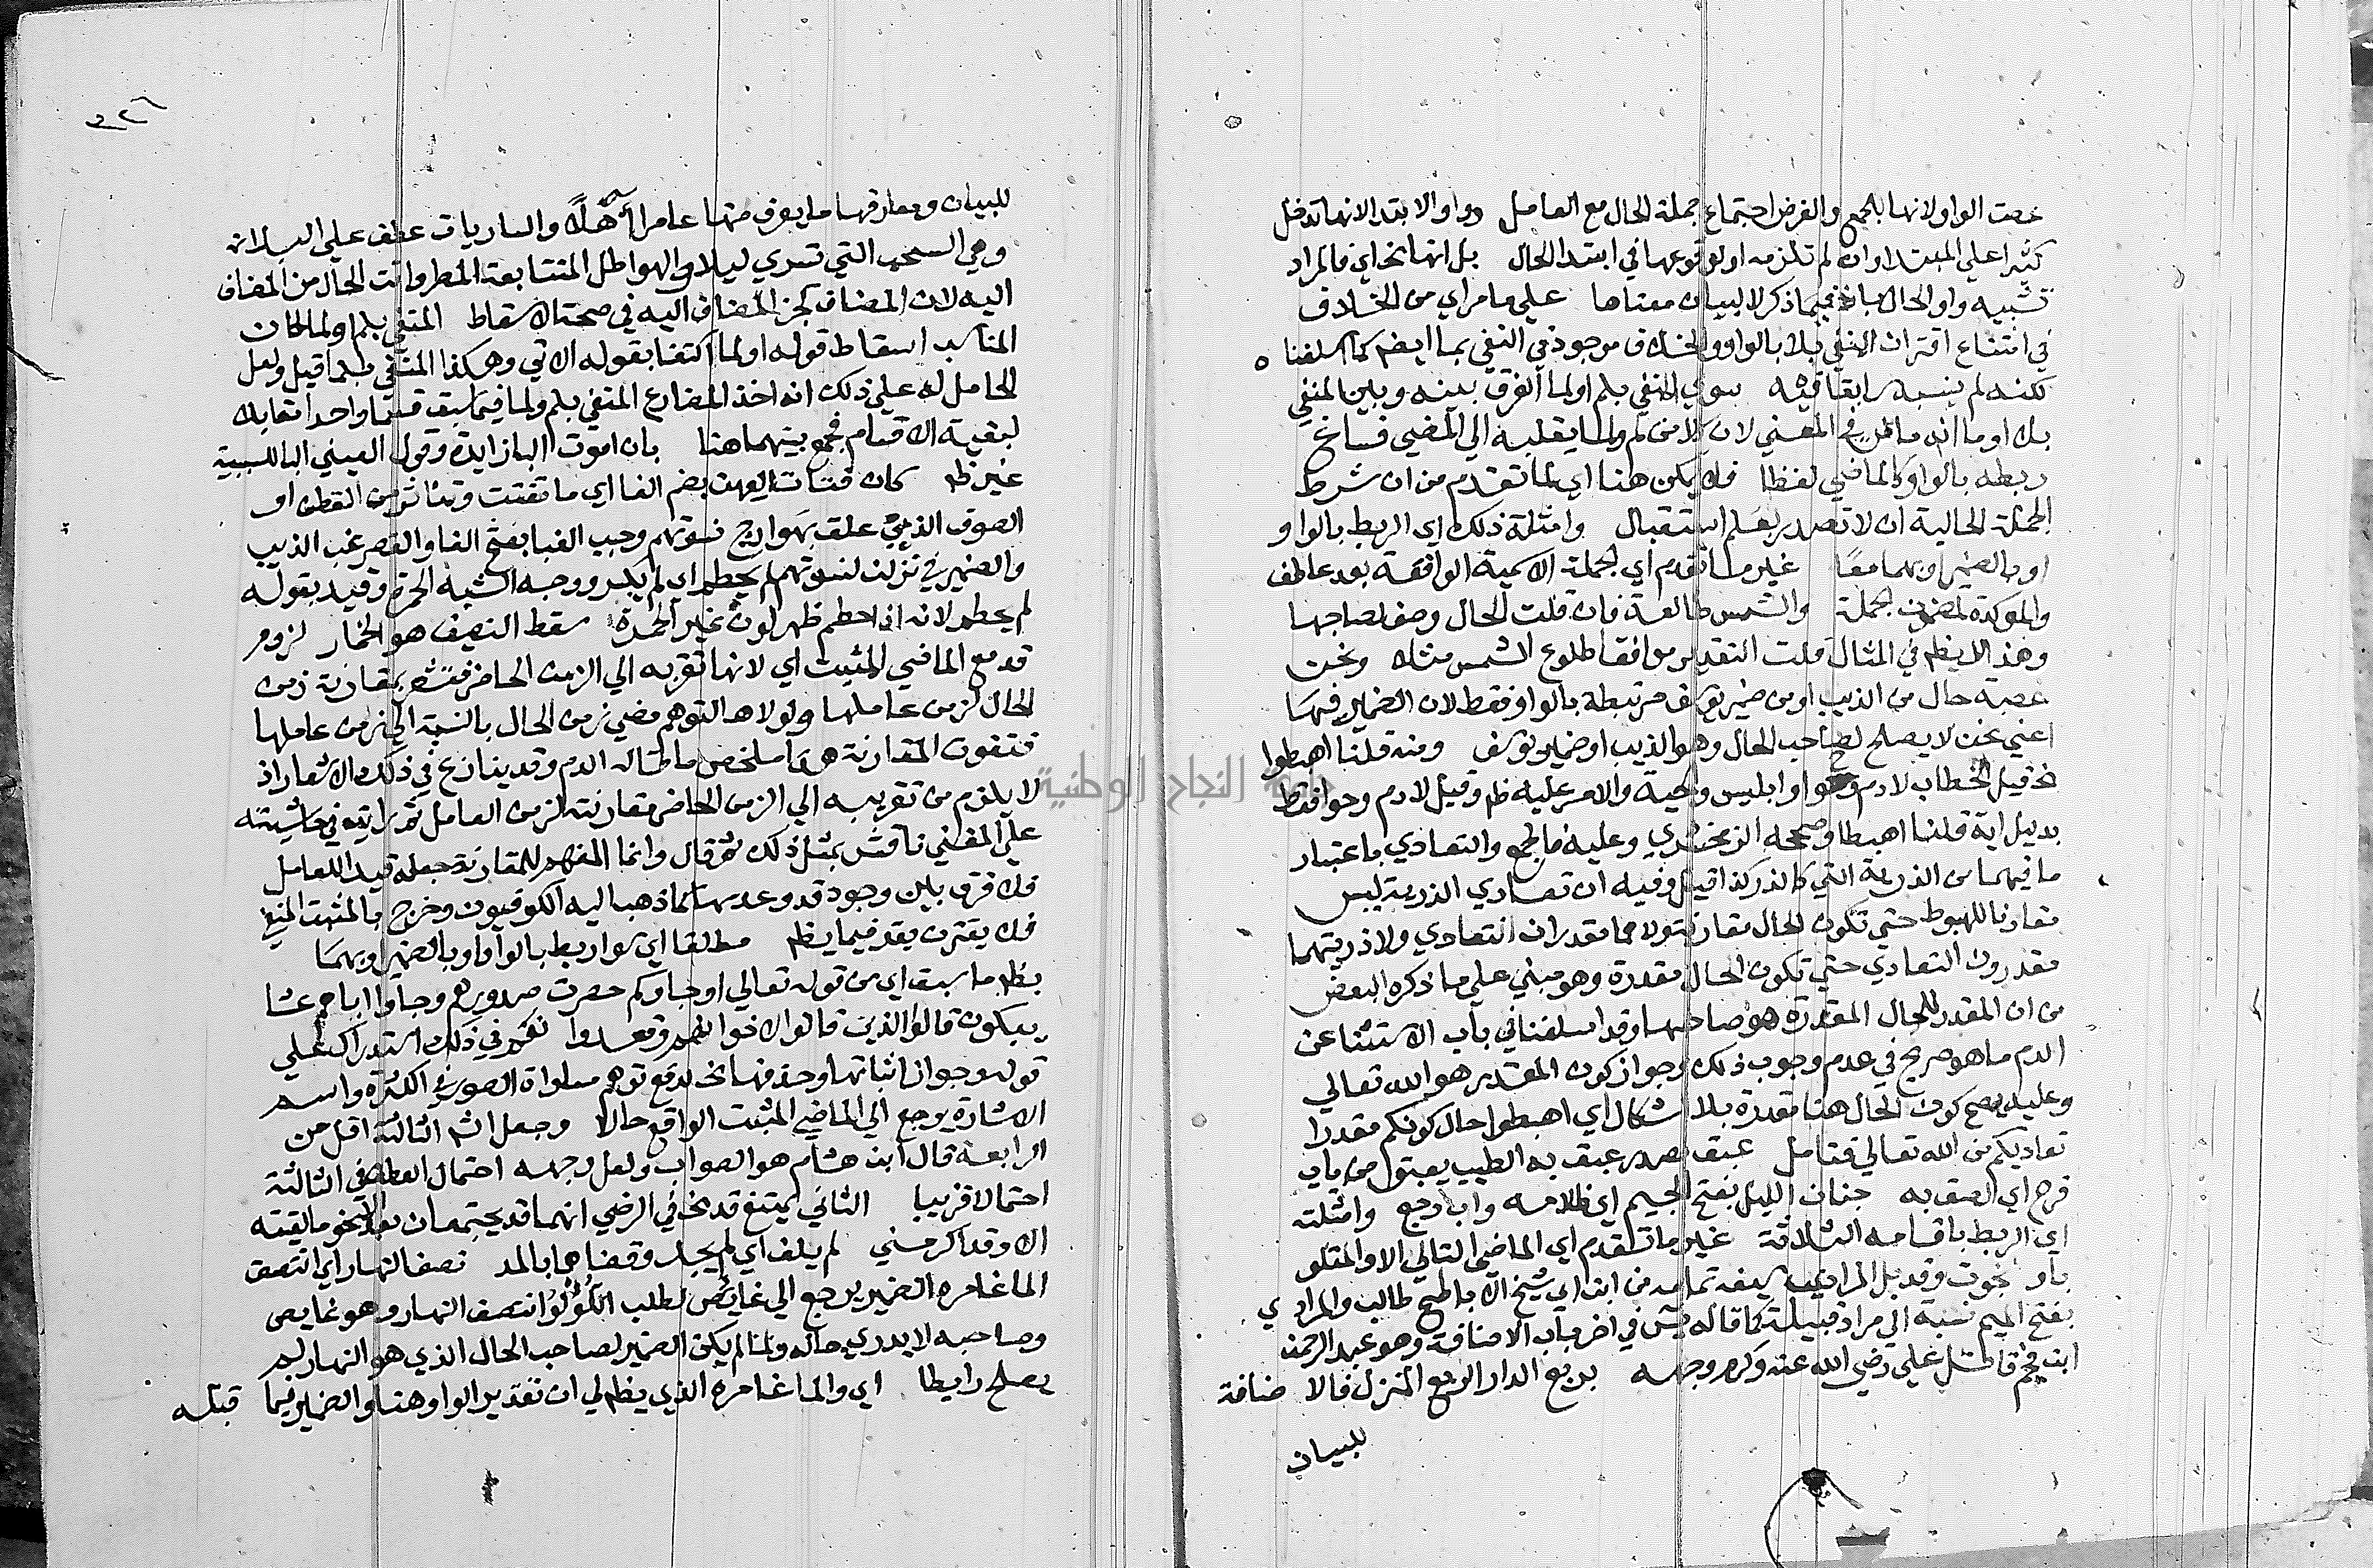 خصت الواو لانها للجمع والغرض اجتماع جملة الحال مع العامل وواو الابتدا لانها تدخل
كثيرا على المبتدا وان لم تلزمه او لوقوعها في ابتدا الحال بل انها الخ اي فالمراد
تشبيه واو الحال باذ فيما ذكر لا لبيان معناها على ما مر اي من الخلاف
في امتناع اقتران المنفي بلا بالواو والخلاف موجود في النفي بما ايضم كما اسلفناه
لكنه لم ينبه سابقا فيه سوي المنفي بلم او لما الفرق بينه وبين المنفي
بلا او ما انه ماض في المعني لان كلا من لم ولما يقلبه الي المضي فساغ
ربطه بالواو كالماضي لفظا فلا يكن هنا اي لما تقدم من ان شرط
الجملة الحالية ان لا تصدر بعلم استقبال وامثلة ذلك اي الربط بالواو
او بالضمير او بهما معًا غير ما تقدم اي الجملة الاسمية الواقعة بعد عاطف
والموكدة لمضمون الجملة والشمس طالعة فان قلت الحال وصف لصاحبها
وهذا لا يظهر في المثال قلت التقدير موافقا طلوع الشمس مثلا ونحن
عصبة حال من الذيب او من ضمير يوسف مرتبطة بالواو فقط لان الضمير فيها
اعني نحن لا يصلح لصاحب الحال وهو الذيب او ضمير يوسف ومنه قلنا اهبطوا
الخ قيل الخطاب لادم وحوا وابليس والحية والامر عليه ظم وقيل لادم وحوا فقط
بدليل اية قلنا اهبطا وصححه الزمخشري وعليه فالجمع والتعادي باعتبار
ما فيهما من الذرية التي كالذر كذا قيل وفيه ان تعادي الذرية ليس
مقارنا للهبوط حتي تكون الحال مقارنة ولا هما مقدران التعادي ولا ذريتهما
مقدرون التعادي حتي تكون الحال مقدرة وهو مبني علي ما ذكره البعض
من ان المقدر للحال المقدرة هو صاحبها وقد اسلفنا في باب الاستثنا عن
الدم ما هو صريح في عدم وجوب ذلك وجواز كون المقدر هو الله تعالي
وعليه يصح كون الحال هنا مقدرة بلا اشكال اي اهبطوا حال كونكم مقدرا
تعاديكم من الله تعالي فتامل عبق مصدر عبق به الطيب يعبق من باب
فرح اي لصق به جنان الليل بفتح الجيم اي ظلامه واب رجع وامثلته
اي الربط باقسامه الثلاثة غير ما تقدم اي الماضي التالي الا والمتلو
باو نجوت وقد بل المرادي سيفه تمامه من ابن ابي شيخ الاباطح طالب والمرادي
بفتح الميم نسبة الي مراد قبيلة كما قاله يس في اخر باب الاضافة وهو عبد الرحمن
ابن ملجم قاتل علي رضي الله عنه وكرم وجهه بربع الدار الربع المنزل فالاضافة
للبيان
٣٢٦
للبيان ومعارفها ما يعرف منها عامرا اهلا والساريات عطف علي البلا انه
وهي السحب التي تسري ليلا والهواطل المتتابعة المطر واتت الحال من المضاف
اليه لان المضاف كجزء المضاف اليه في صحة الاسقاط المنفي بلم او لما كان
المناسب اسقاط قوله او لما اكتفا بقوله الاتي وهكذا المنفي بلما قيل ولعل
الحامل له علي ذلك انه اخذ المضارع المنفي بلم ولما فيما سبق قسما واحدا مقابلا
لبقية الاقسام فجمع بينهما هنا بان اموت البا زايدة وقول العيني البا للسببية
غير ظم كان فتات العهن بضم الفا اي ما تفتت وتناثر من القطن او
الصوف الذي علق بهوادج نسوتهم وحب الفنا بفتح الفا والقصر عنب الذيب
والضمير في نزلن لنسوتهم لم يحطم اي لم يكسر ووجه الشبه الحمرة وقيد بقوله
لم يحطم لانه اذا حطم ظهر لون غير الحمرة سقط النصيف هو الخمار لزوم
قد مع الماضي المثبت اي لانها تقربه الي الزمن الحاضر فتشعر بمقارنة زمن
الحال لزمن عاملها ولولاها لتوهم مضي زمن الحال بالنسبة الي زمن عاملها
فتفوت المقارنة هذا ملخص ما قاله الدم وقد ينازع في ذلك الاشعار اذ
لا يلزم من تقريبه الي الزمن الحاضر مقارنته لزمن العامل ثم رايته في حاشيته
علي المغني ناقش بمثل ذلك ثم قال وانما المفهم للمقارنة جعله قيدا للعامل
فلا فرق بين وجود قد وعدمها كما ذهب اليه الكوفيون وخرج بالمثبت المنفي
فلا يقترن بقد فيما يظهر مطلقا اي سوا ربط بالواو او بالضمير او بهما
بظم ما سبق اي من قوله تعالي او جاوكم حصرت صدورهم وجاوا اباهم عشا
يبكون قالوا الذين قالوا لاخوانهم وقعدوا نعم في ذلك استدراك علي
قوله وجواز اثباتها وحذفها الخ لدفع توهم مساواة الصور في الكثرة واسم
الاشارة يرجع الي الماضي المثبت الواقع حالا وجعل اشم الثالثة اقل من
الرابعة قال ابن هشام هو الصواب ولعل وجهه احتمال العطف في الثالثة
احتمالا قريبا الثاني يمتنع قد الخ في الرضي انهما قد يجتمعان بعد الا نحو ما لقيته
الا وقد اكرمني لم يلف اي لم يجد وقضاها بالمد نصف النهار اي انتصف
الما غامره الضمير يرجع الي غايص لطلب اللؤلؤ انتصف النهار وهو غايص
وصاحبه لا يدري حاله ولما لم يكن الضمير لصاحب الحال الذي هو النهار لم
يصلح رابطا اي والما غامره الذي يظم لي ان تقدير الواو هنا والضمير فيما قبله
جامعة النجاح الوطنية